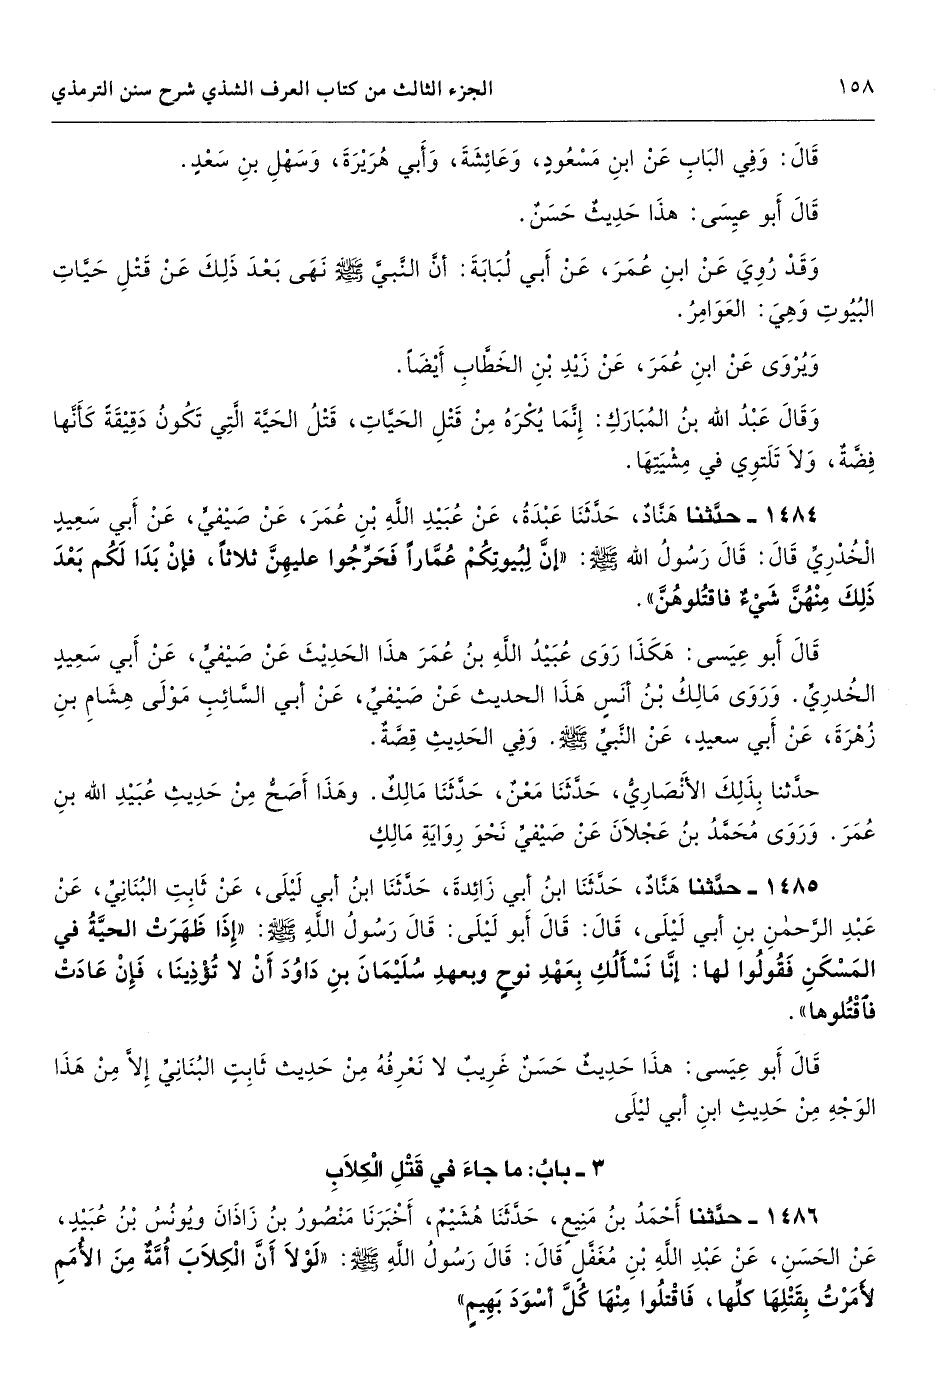 ١٥٨ الجزء الثالث من كتاب العرف الشذي شرح سنن الترمذي
قَالَ: وَفِي البَابِ عَنْ ابنِ مَسْعُودٍ، وَعَائِشَةَ، وَأَبي هُرَيْرَةَ، وَسَهْلِ بنِ سَعْدٍ.
قَالَ أَبو عيِسَى: هذَا حَدِيثٌ حَسَنٌ.
وَقَدْ رُوِيَ عَنْ ابنِ عُمَرَ، عَنْ أَبي لُبَابَةَ: أنَّ النَّبيَّ ﷺ نَهَى بَعْدَ ذَلِكَ عَنْ قَتْلِ حَيَّاتِ
البُيُوتِ وَهِيَ: العَوَامِرُ.
وَيُرْوَى عَنْ ابنِ عُمَرَ، عَنْ زَيْدِ بْنِ الخَطَّابِ أَيْضَاً.
وَقَالَ عَبْدُ الله بنُ المُبَارَكِ: إِنَّمَا يُكْرَهُ مِنْ قَتْلِ الحَيَّاتِ، قَتْلُ الحَيَّة الَّتِي تَكُونُ دَقِيقَةً كَأَنَّها
فِضَّةٌ، وَلاَ تَلَتوِي في مِشْيَتِهَا.
١٤٨٤ ـ حدَّثنا هَنَّادٌ، حَدَّثَنَا عَبْدَةُ، عَنْ عُبَيْدِ اللَّهِ بْنِ عُمَرَ، عَنْ صَيْفيٍّ، عَنْ أَبي سَعِيدٍ
الْخُدْرِيِّ قَالَ: قَالَ رَسُولُ الله ﷺ: «إنَّ لِبُيوتِكُمْ عُمَّاراً فَحَرِّجُوا عليهِنَّ ثلاثاً، فإنْ بَدَا لَكُم بَعْدَ
ذَلِكَ مِنْهُنَّ شَيْءٌ فاقتُلوهُنَّ».
قَالَ أَبو عِيَسى: هَكَذَا رَوَى عُبَيْدُ اللَّهِ بنُ عُمَرَ هذَا الحَدِيْثَ عَنْ صَيْفيٍّ، عَنْ أَبي سَعِيدٍ
الخُدريِّ. وَرَوَى مَالِكُ بْنُ أَنَسٍ هَذَا الحديث عَنْ صَيْفيٍّ، عَنْ أَبي السَّائِبِ مَوْلَى هِشَامِ بنِ
زُهْرَةَ، عَنْ أَبي سعيدٍ، عَنْ النَّبيِّ ﷺ. وَفِي الحَدِيثِ قِصَّةٌ.
حدَّثنا بِذَلِكَ الأَنْصَارِيُّ، حَدَّثَنَا مَعْنٌ، حَدَّثَنَا مَالِكٌ. وهَذَا أَصَحُّ مِنْ حَدِيثِ عُبَيْدِ الله بنِ
عُمَرَ. وَرَوَى مُحَمَّدُ بنُ عَجْلاَنَ عَنْ صَيْفيٍّ نَحْوَ رِوَايَةِ مَالِكٍ
١٤٨٥ ـ حدَّثنا هَنَّادٌ، حَدَّثَنَا ابنُ أبي زَائِدةَ، حَدَّثَنَا ابنُ أبي لَيْلَى، عَنْ ثَابِتٍ البُنَانِيِّ، عَنْ
عَبْدِ الرَّحمٰنِ بنِ أبي لَيْلَى، قَالَ: قَالَ أبو لَيْلَى: قَالَ رَسُولُ اللَّهِ ﷺ: «إِذَا ظَهَرَتْ الحيَّةُ في
المَسْكَنِ فَقُولُوا لها: إنَّا نَسْأَلُكِ بِعَهْدِ نوحٍ وبعهدِ سُلَيْمَانَ بنِ دَاوُدَ أَنْ لا تُؤْذِينَا، فَإِنْ عَادَتْ
فٱقْتُلوها».
قَالَ أبو عِيَسى: هذَا حَدِيثٌ حَسَنٌ غَرِيبٌ لا نَعْرِفُهُ مِنْ حَدِيث ثَابتٍ البُنَانِيِّ إلاَّ مِنْ هَذَا
الوَجْهِ مِنْ حَدِيثِ ابنِ أبي ليْلَى
٣ ـ بابُ: ما جاءَ في قَتْلِ الْكِلاَبِ
١٤٨٦ ـ حدَّثنا أَحْمَدُ بنُ مَنِيعٍ، حَدَّثَنَا هُشَيْمٌ، أَخْبَرَنَا مَنْصُورُ بنُ زَاذَانَ ويُونُسُ بْنُ عُبَيْدٍ،
عَنْ الحَسَنِ، عَنْ عَبدِ اللَّهِ بْنِ مُغَفَّلٍ قَالَ: قَالَ رَسُولُ اللَّهِ ﷺ: «لَوْلاَ أَنَّ الْكِلاَبَ أُمَّةٌ مِنَ الأُمَمِ
لأَمَرْتُ بِقَتْلِهَا كلِّها، فَاقْتلُوا مِنْهَا كُلَّ أسْوَدَ بَهِيمٍ»